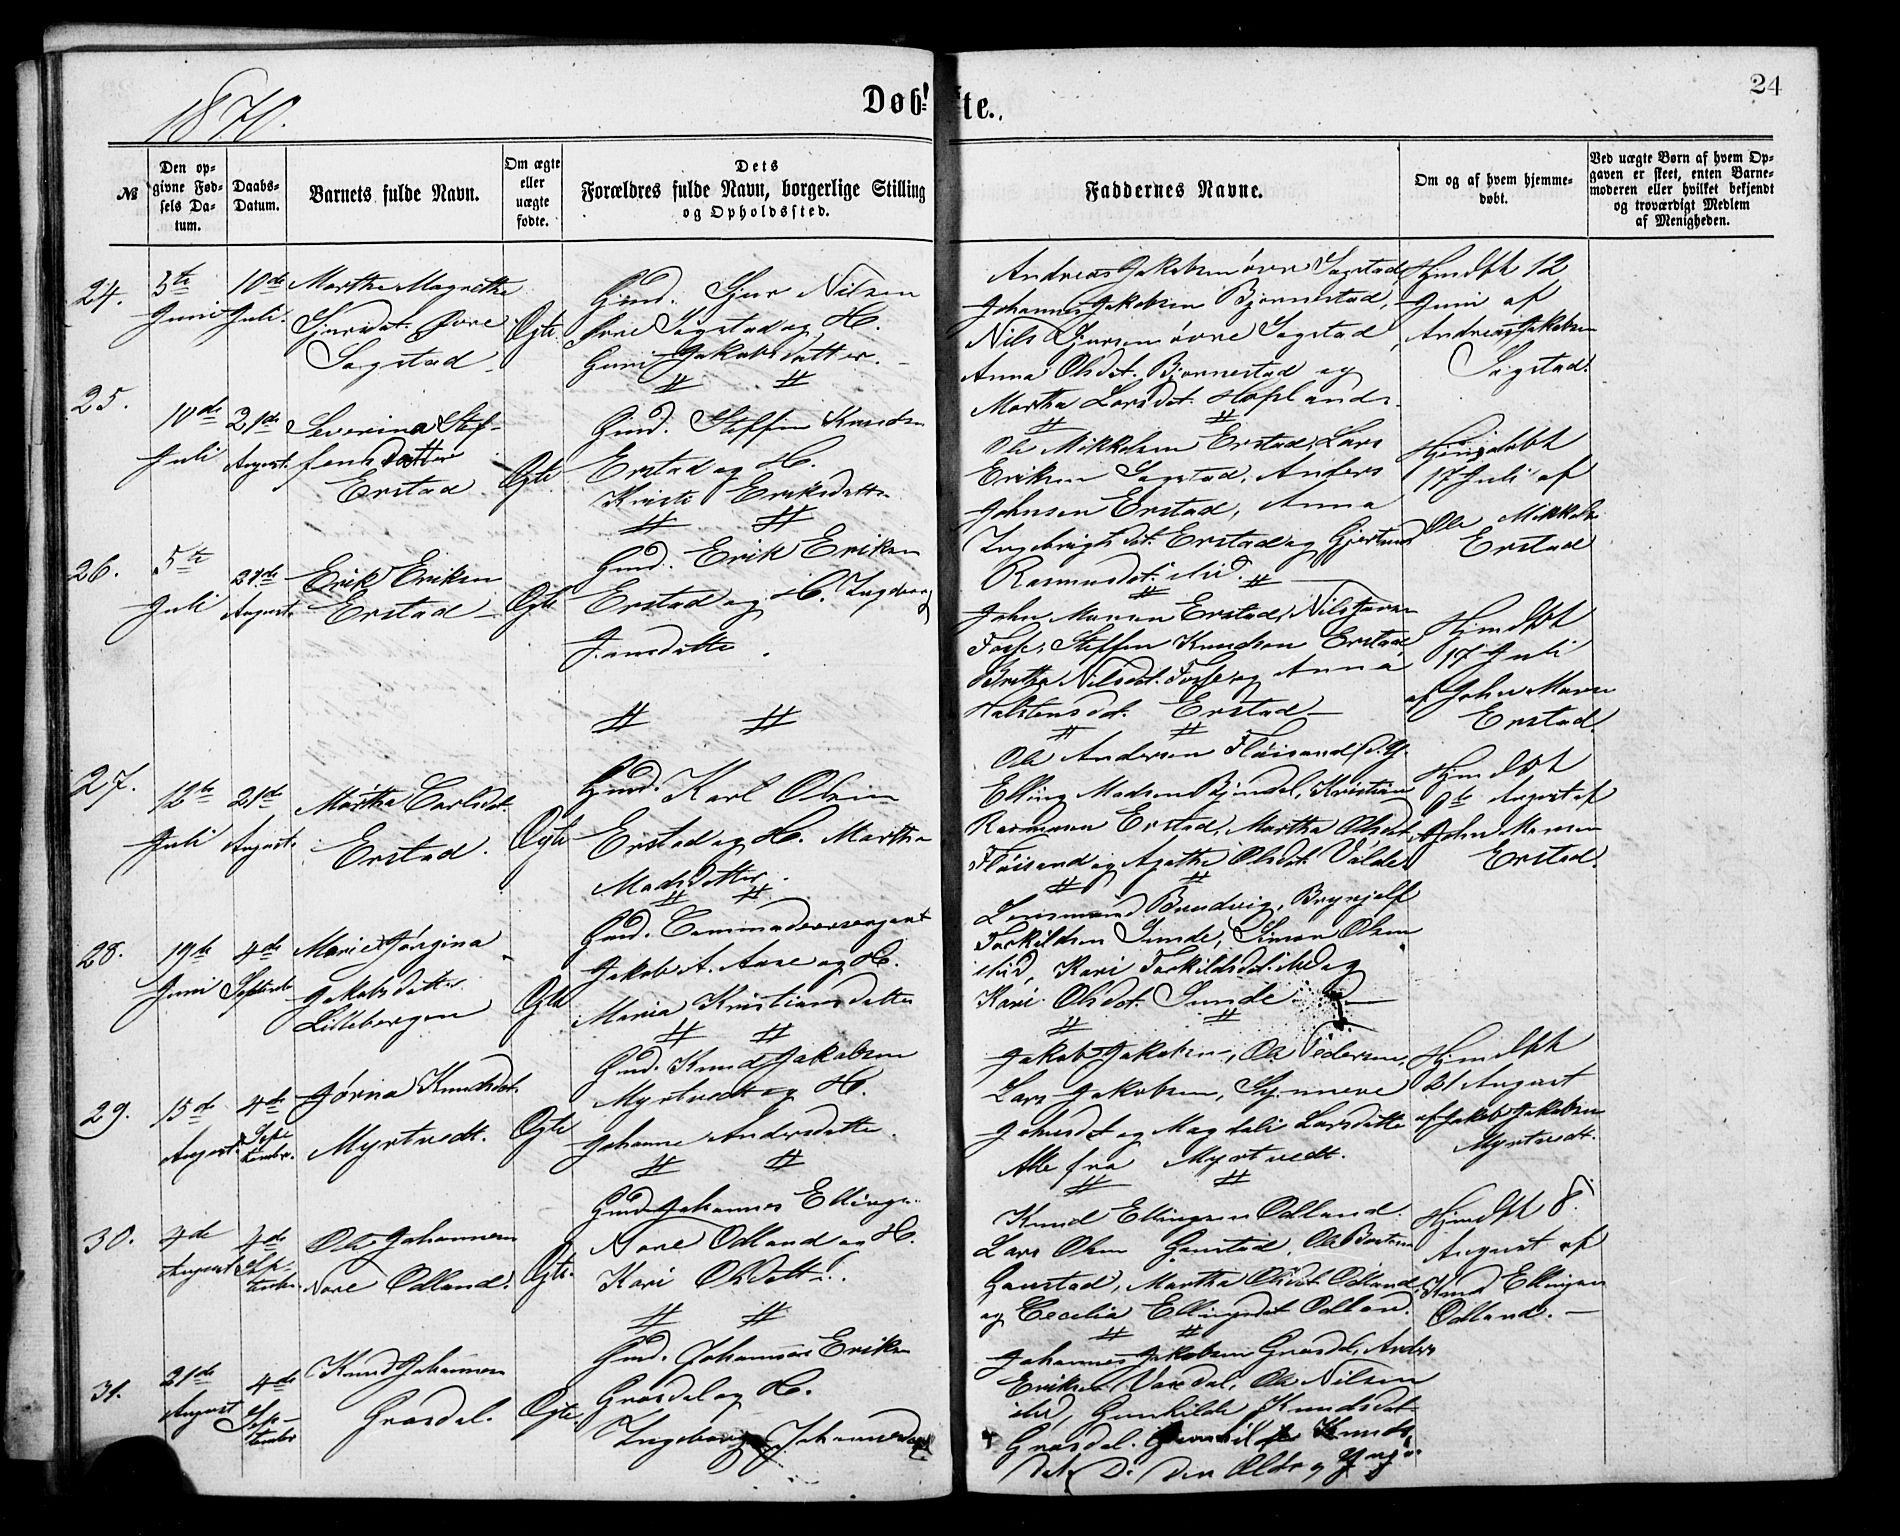 24
1870.
Døbte.
№
Den opgivne Fødsels Datum.
Daabs-Datum.
Barnets fulde Navn.
Om ægte eller uægte fødte.
Dets Forældres fulde Navn, borgerlige Stilling og Opholdssted.
Faddernes Navne.
Om og af hvem hjemmedøbt.
Ved uægte Børn af hvem Opgaven er skeet, enten Barnemoderen eller hvilket bekjendt og troværdigt Medlem af Menigheden.
24.
3te
Juni
10de
Juli.
Martha Magrethe
Sjursdat. Øvre
Sagstad
Ægte
Gmd. Sjur Nilsen
Øvre Sagstad og H.
Guni Jakobsdatter.
Andreas Jakobsen øvre Sagstad,
Johannes Jakobsen Bjørnestad,
Nils Sjursen øvre Sagstad,
Anna Olsdt. Bjørnestad og
Martha Larsdt. Hopland
Hjmdøbt 12
Juni af
Andreas Jakobsen
Sagstad.
25.
10de
Juli
21de
August
Severina Stef-
fensdatter
Erstad
Ægte
Gmd. Steffen Knudsen
Erstad og H.
Kristi Eriksdatter
Ole Mikkelsen Erstad, Lars
Eriksen Sagstad, Anders
Johnsen Erstad, Anna
Ingebrigtsdt. Erstad og
Rasmusdt. ibid.
Hjmdøbt
17 Juli af
Ole Mikkelsen
Erstad
26.
5te
Juli
21de
August
Erik Eriksen
Erstad
Ægte
Gmd. Erik Eriksen
Erstad og H. Ingeborg
Jansdatter.
John Monsen Erstad, Nils
Fosse, Steffen Knudsen Erstad
Brithe Nilsdt. Fosse og Anna
Halstensdt. Erstad
Hjmdøbt
17 Juli
af John Monsen
Erstad.
27.
12te
Juli
21de
August
Martha Carlsdt.
Erstad.
Ægte
Gmd. Karl Olsen
Erstad og H. Martha
Madsdatter.
Ole Andersen Fløisand,
Elling Madsen, Kristian
Rasmussen Erstad, Martha Olsdt.
Fløisand og Agathe Olsdt.
Hjmdøbt
August af
John Monsen
Erstad.
28.
19de
Juni
4de
September
Marie Jørgina
Jakobsdatter
Lillebergen
Ægte
Gmd.
Jakob A. Aase og H.
Maria Kristiansdatter
Brudvig, Brynjulf
Torkildsen Sunde, Simon Olsen
ibid, Kari Torkildsdt. ibid og
Kari Olsdt. Sunde
29.
15de
August
4de
September.
Jørina Knudsdt.
Myrtvedt.
Ægte
Gmd. Knud Jakobsen
Myrtvedt og H.
Johanne Andersdatter.
Jakob Jakobsen, Ole Pedersen,
Lars Jakobsen, Synneve
Johnsdt og Magdali Larsdatter
Alle fra Myrtvedt.
Hjmdøbt
21 August
af Jakob Jakobsen
Myrtvedt.
30.
4de
August
4de
September.
Ole Johannesen
Nore Odland.
Ægte.
Gmd. Johannes Ellings.
Nore Odland og H.
Kari Olsdatter.
Knud Ellingsen Odland.
Lars Olsen Gaustad, Ole
Gaustad, Martha Olsdt Odland
og Cecilia Ellingsdt Odland.
Hjmdøbt 8.
August af
Knud Ellingsen
Odland.
31.
21de
August
4de
September
Knud Johannesen
Grasdal.
Ægte.
Gmd. Johannes Eriksen
Grasdal og H.
Ingeborg Johannesdt
Johannes Jakobsen Grasdal, Anders
Eriksen, Ole Nilsen
ibid, Gunhilde Knudsdt
Grasdal. Gunhilde Knuds-